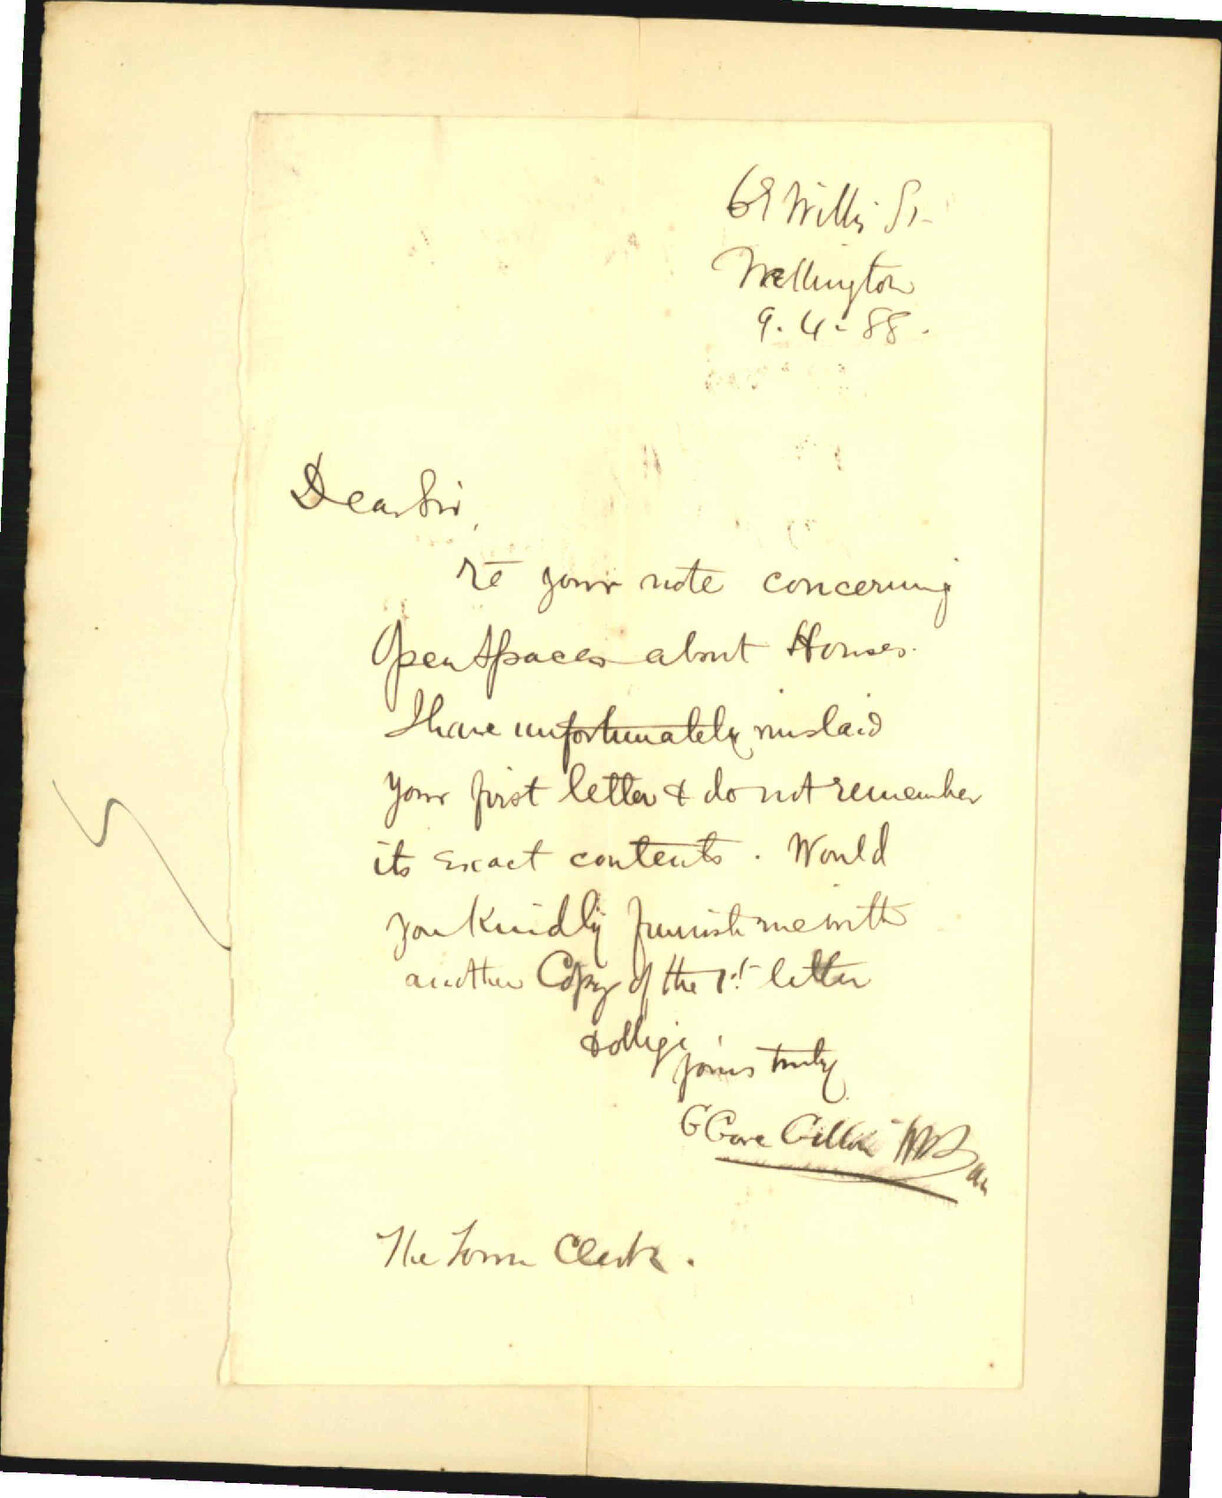 69 Willis St
Wellington
9.4-88.
Dear Sir,
re your note concerning
Open Spaces about Houses.
I have unfortunately mislaid
your first letter & do not remember
its exact contents. Would
you kindly furnish me with
another Copy of the 1st letter
& oblige
yours truly
G Gore Gillon
The Town Clerk.